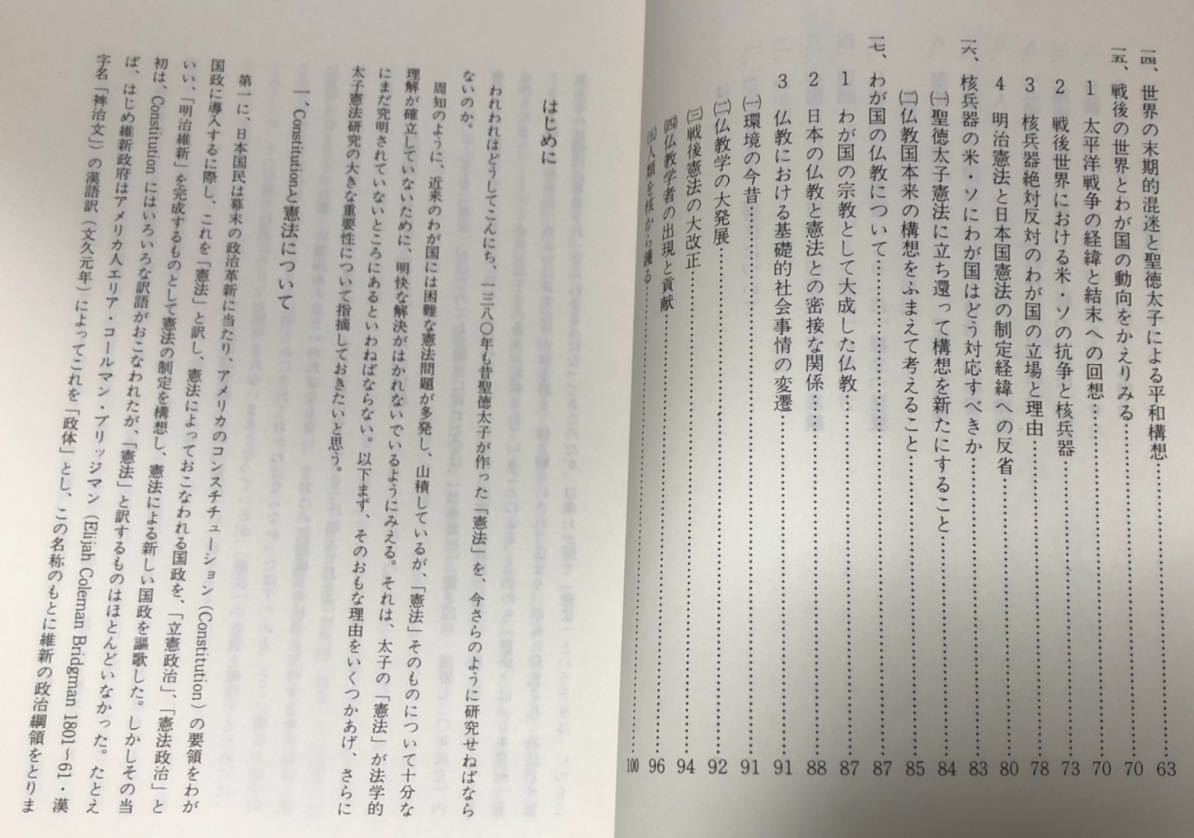 一四、世界の末期的混迷と聖徳太子による平和構想……63
一五、戦後の世界とわが国の動向をかえりみる……70
1 太平洋戦争の経緯と結末への回想……70
2 戦後世界における米・ソの抗争と核兵器……73
3 核兵器絶対反対のわが国の立場と理由……78
4 明治憲法と日本国憲法の制定経緯への反省……80
一六、核兵器の米・ソにわが国はどう対応すべきか……83
㈠聖徳太子憲法に立ち還って構想を新たにすること……84
㈡仏教国本来の構想をふまえて考えること……85
一七、わが国の仏教について……87
1 わが国の宗教として大成した仏教……87
2 日本の仏教と憲法との密接な関係……88
3 仏教における基礎的社会事情の変遷……91
㈠環境の今昔……91
㈡仏教学の大発展……92
㈢戦後憲法の大改正……94
㈣仏教学者の出現と貢献……96
㈤人類を核から護る……100
はじめに
われわれはどうしてこんにち、一三八〇年も昔聖徳太子が作った「憲法」を、今さらのように研究せねばなら
ないのか。
周知のように、近来のわが国には困難な憲法問題が多発し、山積しているが、「憲法」そのものについて十分な
理解が確立していないために、明快な解決がはかれないでいるようにみえる。それは、太子の「憲法」が法学的
にまだ究明されていないところにあるといわねばならない。以下まず、そのおもな理由をいくつかあげ、さらに
太子憲法研究の大きな重要性について指摘しておきたいと思う。
一、Constitutionと憲法について
第一に、日本国民は幕末の政治革新に当たり、アメリカのコンスチチューション（Constitution）の要領をわが
国政に導入するに際し、これを「憲法」と訳し、憲法によっておこなわれる国政を、「立憲政治」、「憲法政治」と
いい、「明治維新」を完成するものとして憲法の制定を構想し、憲法による新しい国政を謳歌した。しかしその当
初は、Constitution にはいろいろな訳語がおこなわれたが、「憲法」と訳するものはほとんどいなかった。たとえ
ば、はじめ維新政府はアメリカ人エリア・コールマン・ブリッジマン（Elijah Coleman Bridgman 1801～61・漢
字名「裨治文」）の漢語訳（文久元年）によってこれを「政体」とし、この名称のもとに維新の政治綱領をとりま